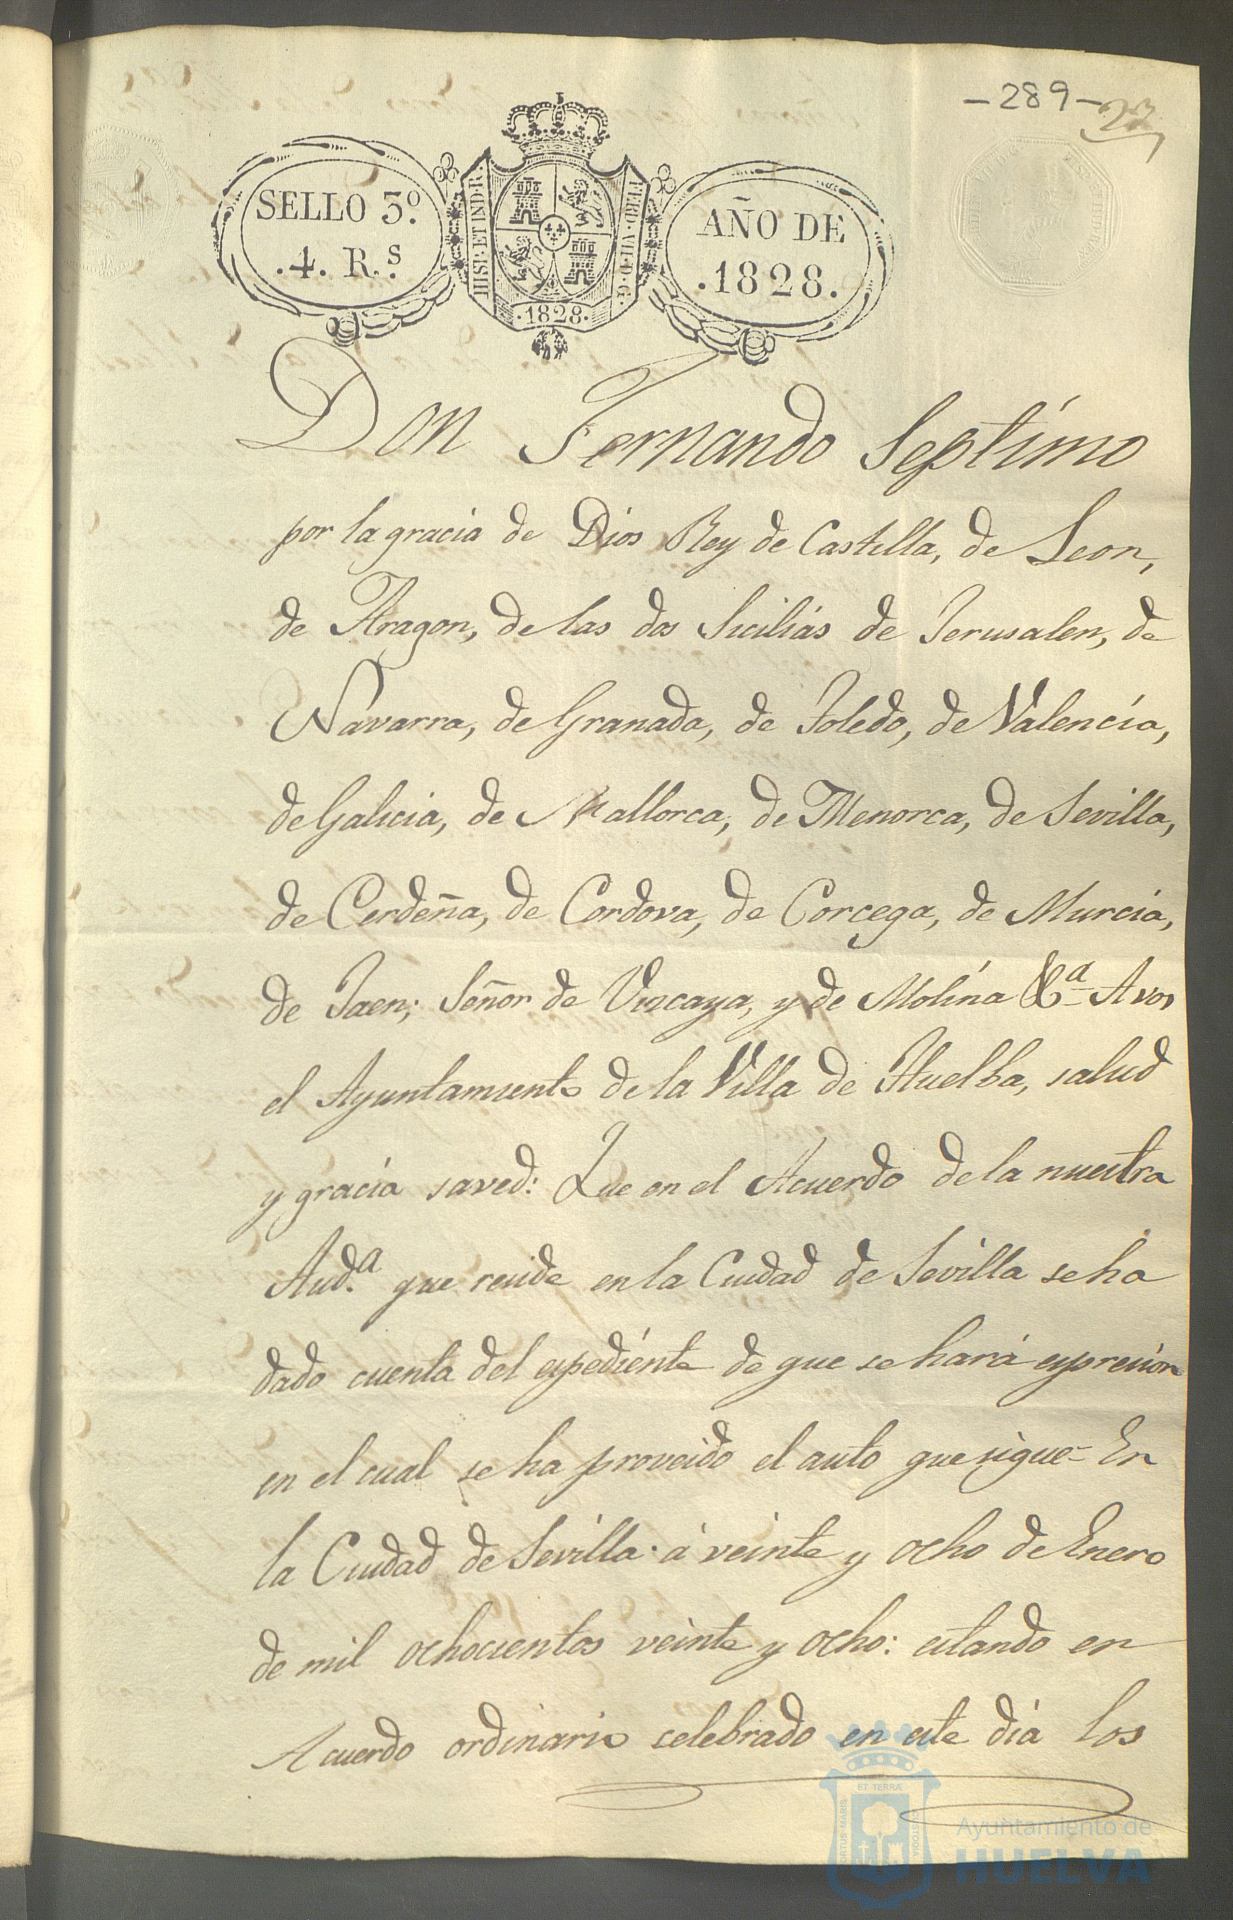 -289-
27
SELLO 3º
.4. R.s
HISP. ET IND. R.
FERD. VII. D. G.
.1828.
AÑO DE
.1828.
Don Fernando Septimo
por la gracia de Dios Rey de Castilla, de Leon,
de Aragon, de las dos Siciliás de Jerusalen, de
Navarra, de Granada, de Toledo, de Valencia,
de Galicia, de Mallorca, de Menorca, de Sevilla,
de Cerdeña, de Cordova, de Corcega, de Murcia,
de Jaen; Señor de Viscaya, y de Molína &ª A vos
el Ayuntamiento de la Villa de Huelba, salud
y gracia saved: Que en el Acuerdo de la nuestra
Aud.ª que reside en la Ciudad de Sevilla se ha
dado cuenta del espediénte de que se hará espresion
en el cual se ha proveido el auto que sigue = En
la Ciudad de Sevilla á veinte y ocho de Enero
de mil ochocientos veinte y ocho: estando en
Acuerdo ordinario celebrado en este día los
PORTUS MARIS
ET TERRÆ
CUSTODIA
Ayuntamiento de
HUELVA